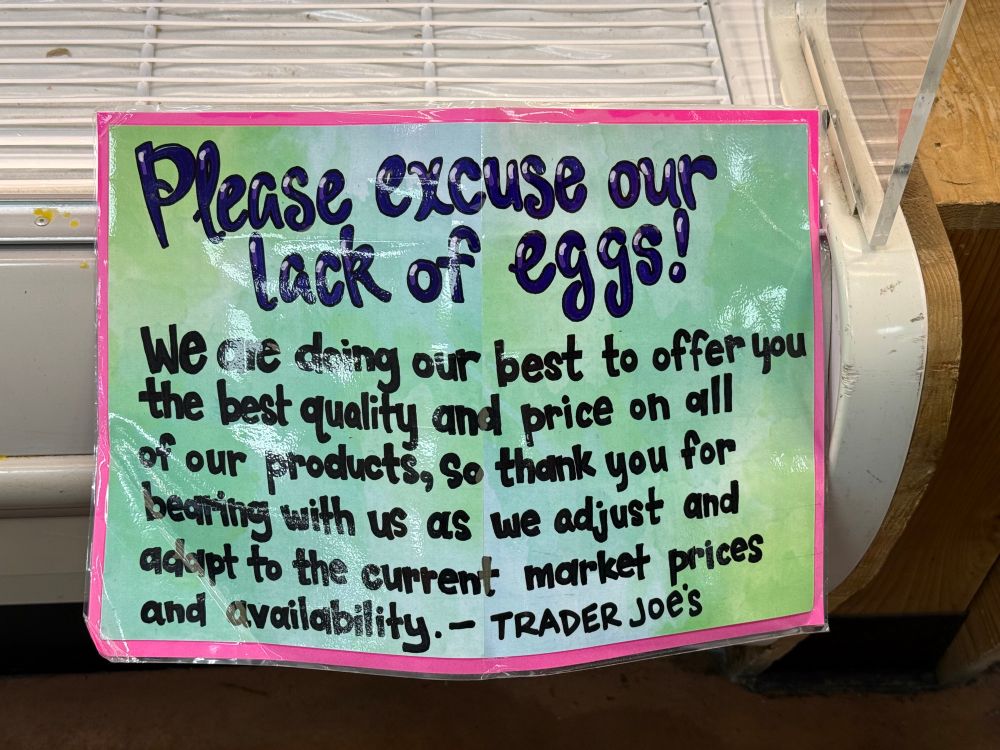 Please excuse our
lack of eggs!
We are doing our best to offer you
the best quality and price on all
of our products, so thank you for
bearing with us as we adjust and
adapt to the current market prices
and availability. — TRADER JOE'S